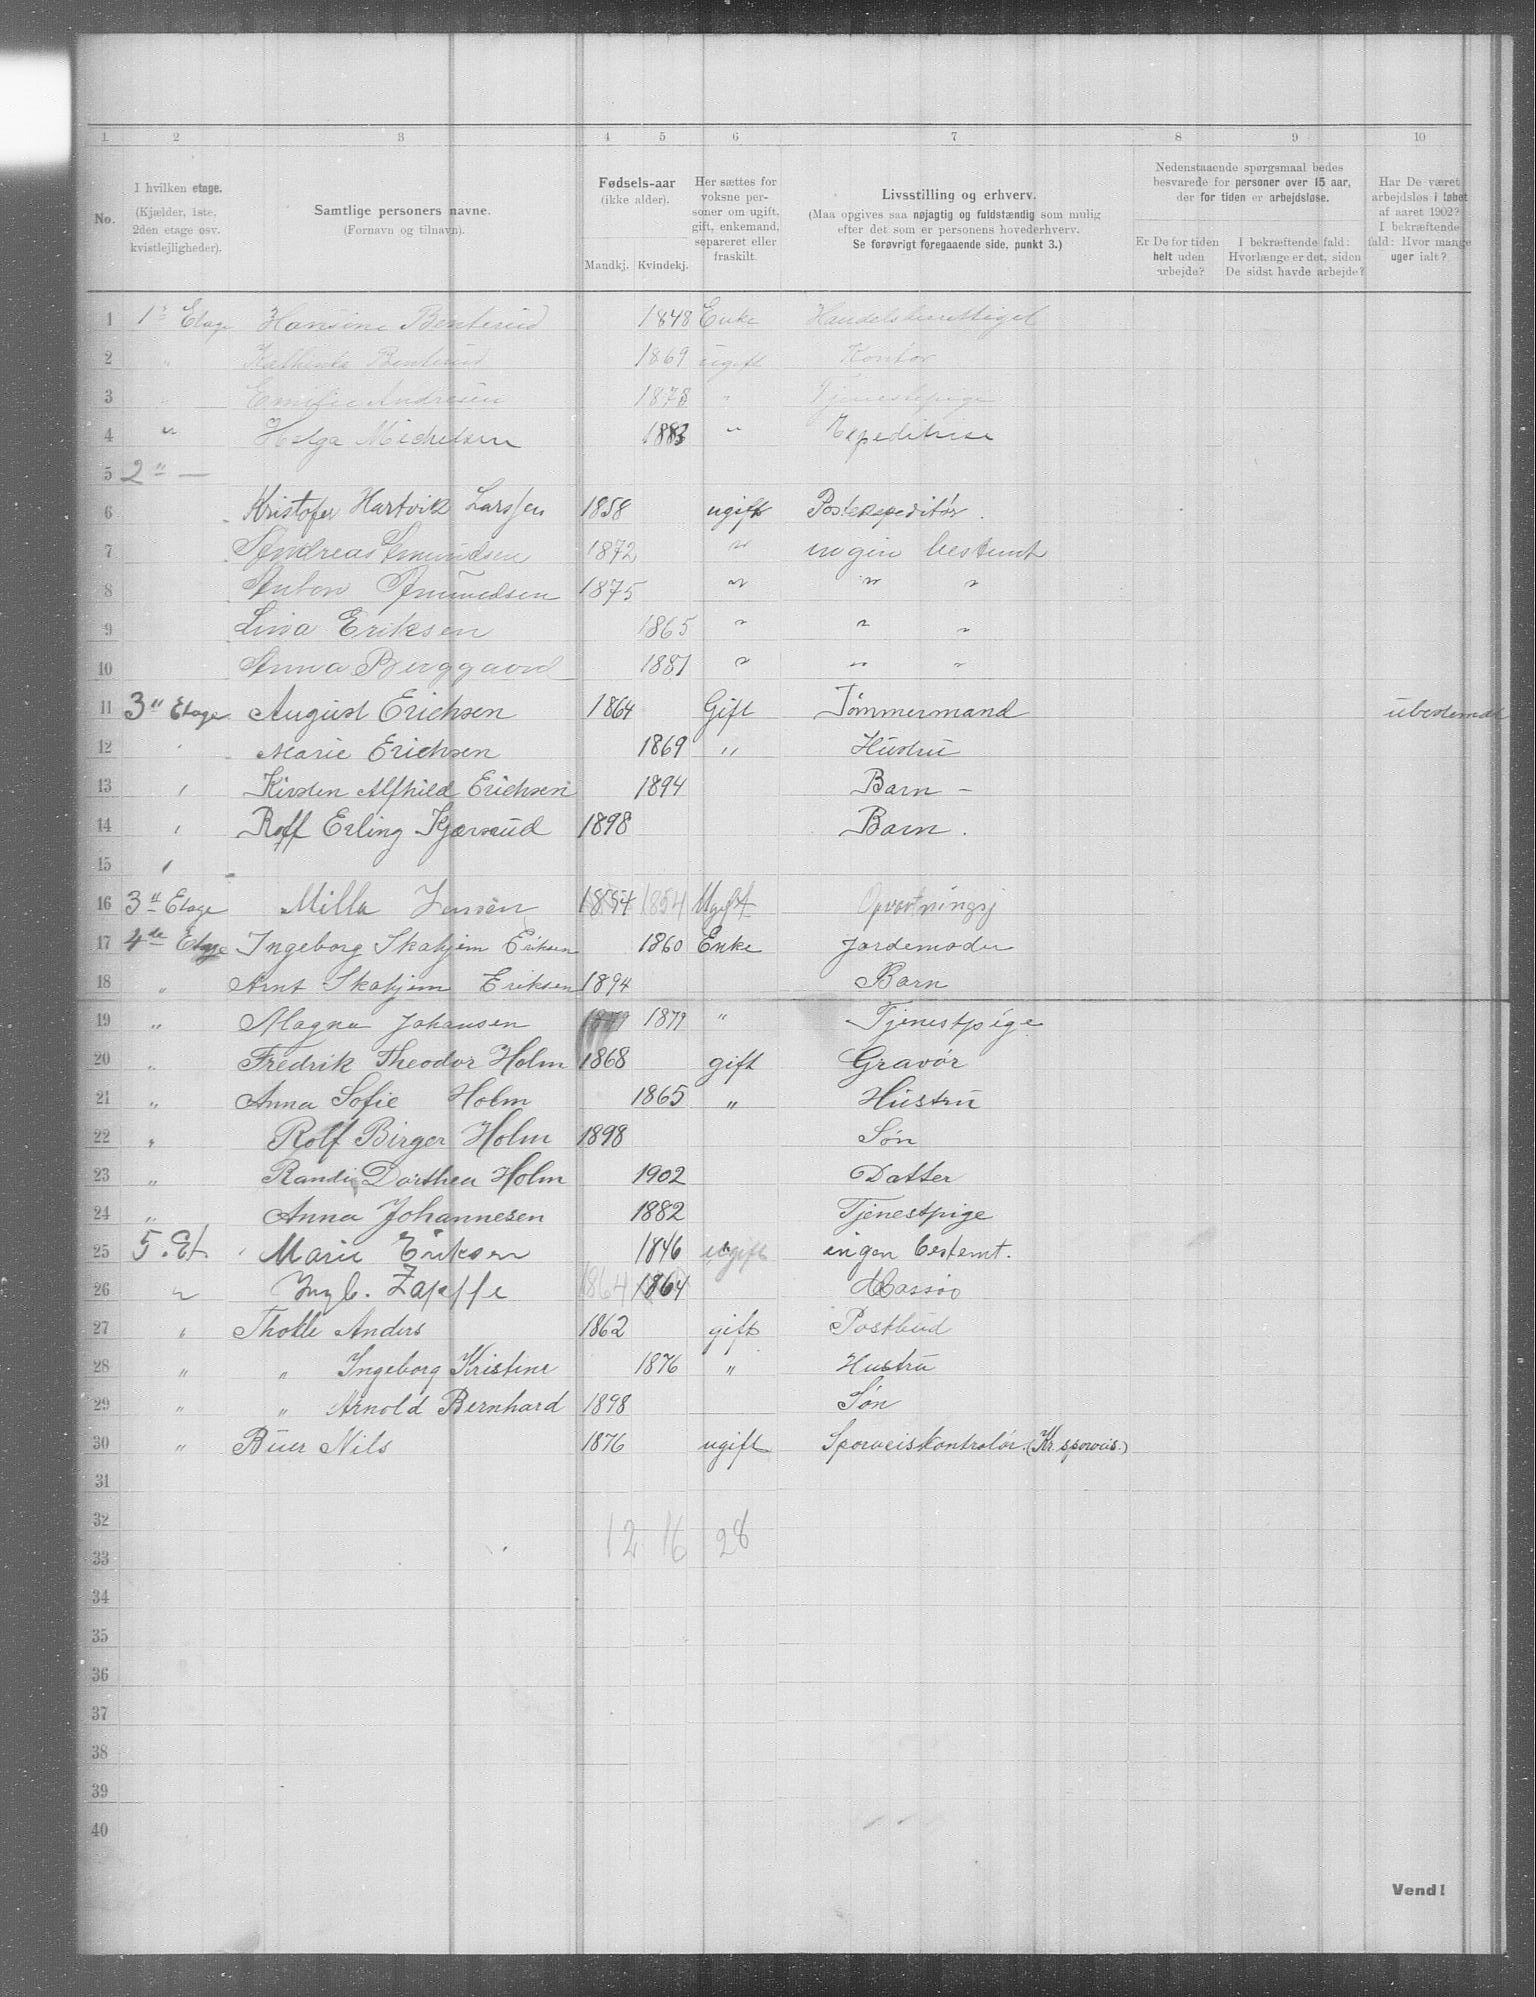 1 2 3 4 5 6 7 8 9 10
No.
I hvilken etage.
(Kjælder, 1ste,
2den etage osv.
kvistlejligheder).
Samtlige personers navne.
(Fornavn og tilnavn).
Fødsels-aar
(ikke alder).
Mandkj. Kvindekj.
Her sættes for
voksne per-
soner om ugift,
gift, enkemand,
separeret eller
fraskilt.
Livsstilling og erhverv.
(Maa opgives saa nøjagtig og fuldstændig som mulig
efter det som er personens hovederhverv.
Se forøvrigt foregaaende side, punkt 3.)
Nedenstaaende spørgsmaal bedes
besvarede for personer over 15 aar,
der for tiden er arbejdsløse.
Er De for tiden
helt uden
arbejde?
I bekræftende fald:
Hvorlænge er det, siden
De sidst havde arbejde?
Har De været
arbejdsløs i løbet
af aaret 1902?
I bekræftende
fald: Hvor mange
uger ialt?
1 1ste Etage Hansine Benterud 1848 Enke Handelsberettiget
2 " Kathinka Benterud 1869 ugift Kontor
3 " Emilie Andresen 1878 " Tjenestepige
4 " Helga Michelsen 1883 " Expeditrise
5 2" —
6 Kristofer Hartvik Larssen 1858 ugift Postexpeditør.
7 Andreas 1872 " ingen bestemt
8 Anton 1875 " " "
9 Lina Eriksen 1865 " " "
10 Anna Berggaard 1881 " " "
11 3" Etage August Erichsen 1864 Gift Tømmermand ubestemt
12 " Marie Erichsen 1869 " Hustru
13 " Kirsten Alfhild Erichsen 1894 Barn -
14 " Rolf Erling Kjærsrud 1898 Barn.
15 "
16 3" Etage Milla Jensen 1854 1854 Ugift Opvartningsj
17 4de Etage Ingeborg Skahjem Eriksen 1860 Enke Jordemoder
18 " Arnt Skahjem Eriksen 1894 Barn
19 " Magna Johansen 1879 1879 " Tjenestpige
20 " Fredrik Theodor Holm 1868 gift Gravør
21 " Anna Sofie Holm 1865 " Hustru
22 " Rolf Birger Holm 1898 Søn
23 " Randi Dorthea Holm 1902 Datter
24 " Anna Johannesen 1882 Tjenestpige
25 5. Et. Marie Eriksen 1846 ugift ingen bestemt.
26 " Ingb. Zapffe 1864 1864 Massør
27 " Tholle Anders 1862 gift Postbud
28 " " Ingeborg Kristine 1876 " Hustru
29 " " Arnold Bernhard 1898 Søn
30 " Buer Nils 1876 ugift Sporveiskontrolør. (Kr. sporveis.)
31
32
12 16 28
33
34
35
36
37
38
39
40
Vend!